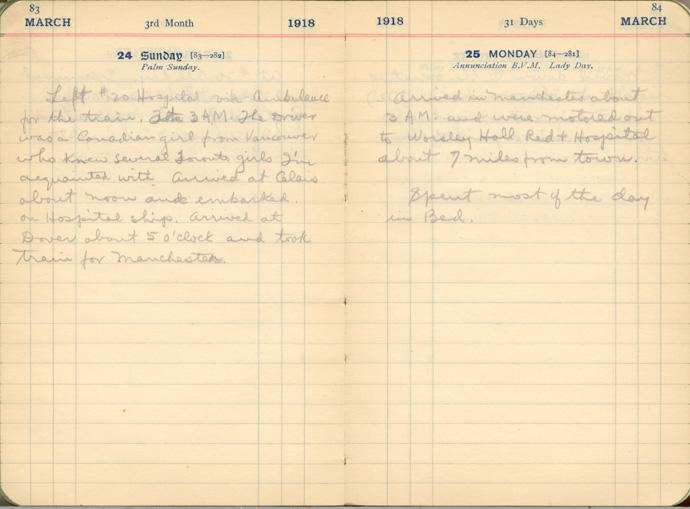 83
MARCH 3rd Month 1918
24 Sunday [83—282]
Palm Sunday.
Left #20 Hospital via Ambulance
for the train. 3 AM. The Driver
was a Canadian girl from Vancouver
who knew several Toronto girls I'm
acquainted with Arrived at Calais
about noon and embarked.
on Hospital ship. Arrived at
Dover about 5 o'clock and took
train for Manchester.
84
1918 31 Days MARCH
25 MONDAY [84—281]
Annunciation B.V.M. Lady Day.
Arrived in Manchester about
3 AM. and were motored out
to Worsley Hall Red + Hospital
about 7 miles from town.
Spent most of the day
in Bed.